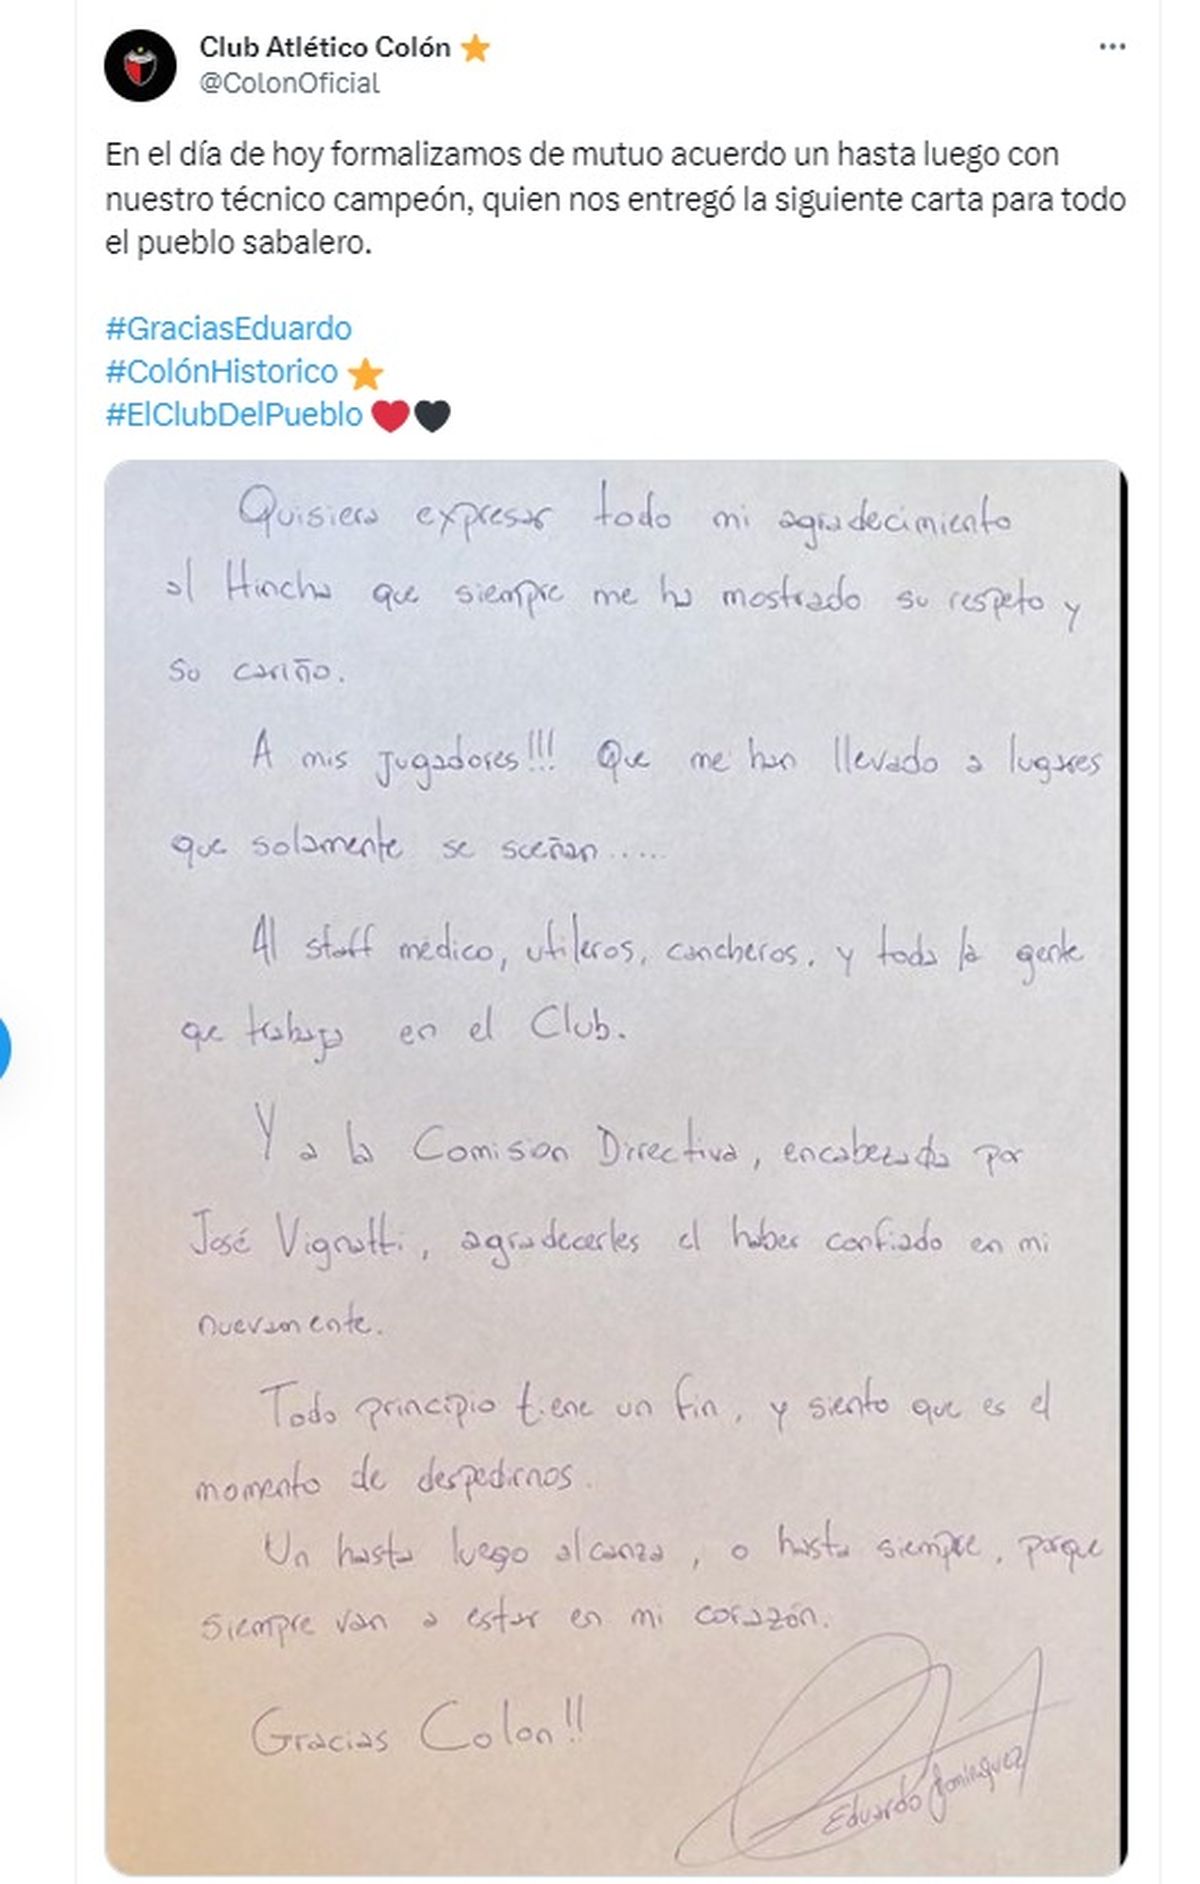 Club Atlético Colón ⭐
@ColonOficial
En el día de hoy formalizamos de mutuo acuerdo un hasta luego con
nuestro técnico campeón, quien nos entregó la siguiente carta para todo
el pueblo sabalero.
#GraciasEduardo
#ColónHistorico ⭐
#ElClubDelPueblo ❤️🖤
Quisiera expresar todo mi agradecimiento
al Hincha que siempre me ha mostrado su respeto y
su cariño.
A mis jugadores!!! Que me han llevado a lugares
que solamente se sueñan.....
Al staff médico, utileros, cancheros, y toda la gente
que trabaja en el Club.
Y a la Comision Directiva, encabezada por
José Vignatti, agradecerles el haber confiado en mi
nuevamente.
Todo principio tiene un fin, y siento que es el
momento de despedirnos.
Un hasta luego alcanza, o hasta siempre, porque
siempre van a estar en mi corazón.
Gracias Colon!!
Eduardo Dominguez